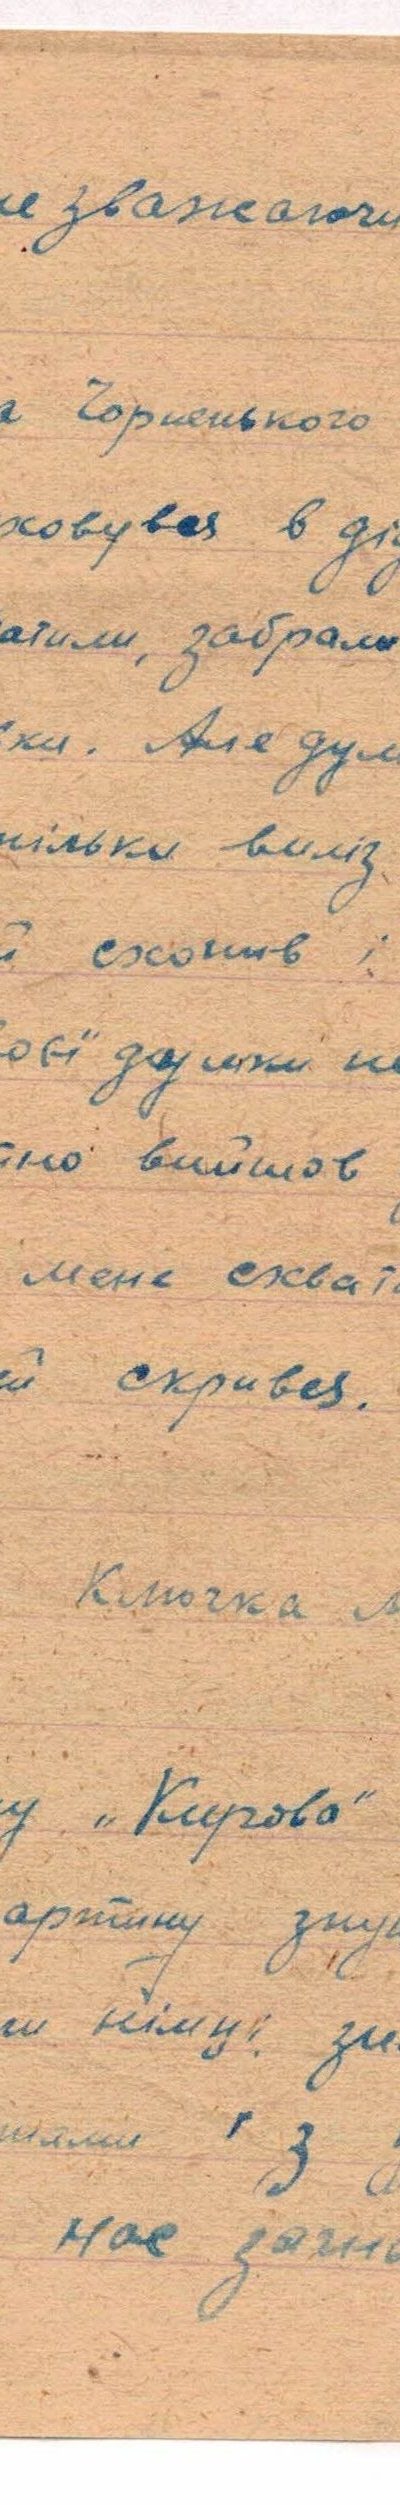 не зважаючи
а Чорненького
ховувся в
атили, забрали
ки. Але дум
тільки виліз
й схопив і
воєї думки не
но вийшов
мене схват
й скрився.
Ключка
у „Кирова“
артину зну
німці
з
нас